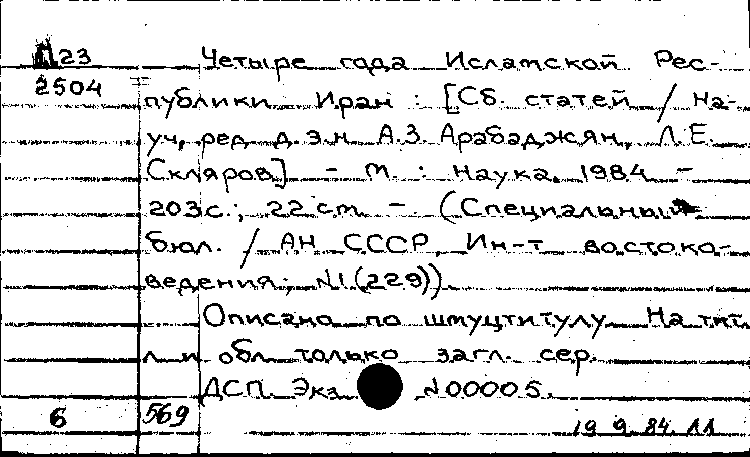 П23 Четыре года Исламской Рес-
2504 публики Иран : [Сб. статей / На-
уч, ред д.э.н А.З. Арабаджян, Л.Е.
Скляров] - М. : Наука, 1984 -
203с.; 22 см -. (Специальный
бюл. / АН СССР, Ин-т востоко-
ведения; №1(229))
Описано по шмуцтитулу На тит.
л и обл только загл. сер.
ДСП. Экз №00005.
6 569
19 9. 84.